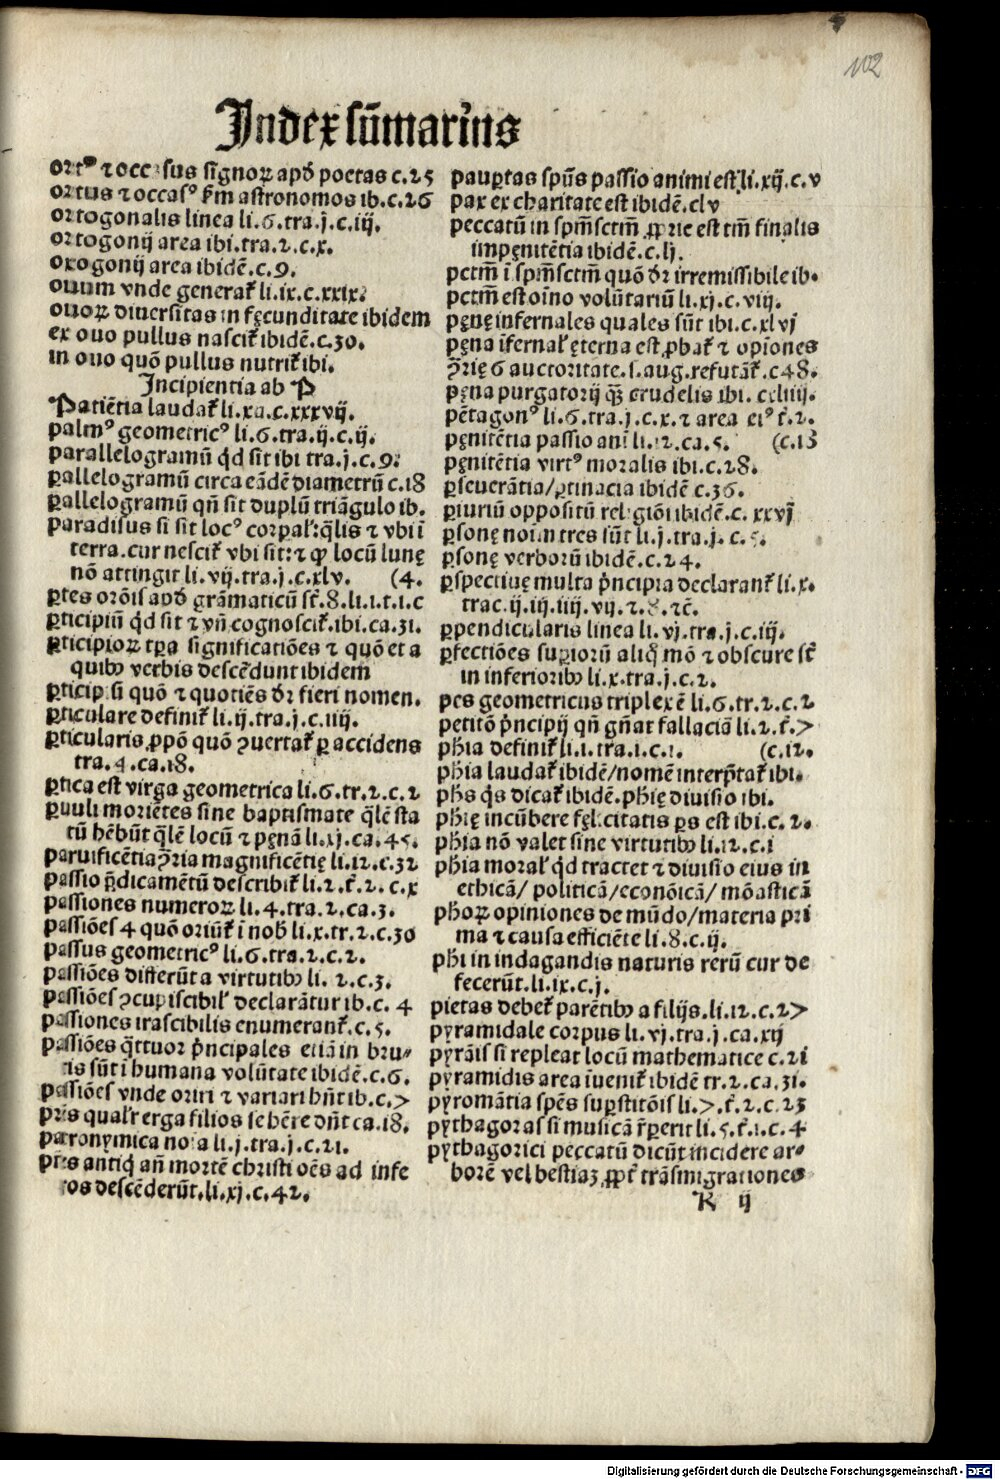 102
Index sūmarius
ortꝰ ⁊ occasus signoꝝ apd̄ poetas c.25
ortus ⁊ occasꝰ ẜm astronomos ib.c.26
ortogonalis linea li.6.tra.j.c.iij.
ortogonij area ibi.tra.2.c.x.
oxogonij area ibidē.c.9.
ovum vnde generat᷑ li.ix.c.xxix.
ovoꝝ diversitas in fęcunditate ibidem
ex ovo pullus nascit᷑ ibidē.c.30.
in ovo quō pullus nutrit᷑ ibi.
Incipientia ab P
Patiētia laudat᷑ li.xa.c.xxxvij.
palmꝰ geometricꝰ li.6.tra.ij.c.ij.
parallelogramū qd̄ sit ibi tra.j.c.9.
ꝑallelogramū circa eādē diametrū c.18
ꝑallelogramū qn̄ sit duplū triāgulo ib.
paradisus si sit locꝰ corpal᷑:q̄lis ⁊ vbi ī
terra.cur nescit᷑ vbi sit:⁊ ꝙ locū lunę
nō attingit li.vij.tra.j.c.xlv. (4.
ꝑtes orōis apd̄ grāmaticū st̄.8.li.1.t.1.c
ꝑticipiū qd̄ sit ⁊ vn̄ cognoscit᷑.ibi.ca.31.
ꝑticipioꝝ tp̄a significatiōes ⁊ quō et a
quibꝰ verbis descēdunt ibidem
ꝑticipsi quō ⁊ quotiēs dr̄ fieri nomen.
ꝑticulare definit᷑ li.ij.tra.j.c.iiij.
ꝑticularis ꝓpō quō ꝯvertat᷑ ꝑ accidens
tra.4.ca.18.
ꝑtica est virga geometrica li.6.tr.2.c.2
ꝑvuli moriētes sine baptismate q̄lē sta
tū hēbūt q̄lē locū ⁊ pęnā li.xj.ca.45.
parvificētia ꝯria magnificētię li.12.c.32
passio p̄dicamētū describit᷑ li.2.t᷑.2.c.x
passiones numeroꝝ li.4.tra.2.ca.3.
passiōes 4 quō oriūt᷑ ī nob̄ li.x.tr.2.c.30
passus geometricꝰ li.6.tra.2.c.2.
passiōes differūt a virtutibꝰ li. 2.c.3.
passiōes ꝯcupiscibil᷑ declarātur ib.c. 4
passiones irascibilis enumerant᷑.c.5.
passiōes q̄ttuor p̄ncipales etiā in bru⸗
tis sūt ī humana volūtate ibidē.c.6.
passiōes vnde oriri ⁊ variari hn̄t ib.c.7
pr̄is qualr̄ erga filios se hēre dn̄t ca.18.
patronymica noīa li.j.tra.j.c.21.
pr̄es antiq̄ an̄ mortē christi oēs ad infe
ros descēderūt.li.xj.c.42.
pauꝑtas spūs passio animi est li.xij.c.v
pax ex charitate est ibidē.clv
peccatū in spm̄sctm̄ ꝓprie est tm̄ finalis
impęnitētia ibidē.c.lj.
pctm̄ ī spm̄sctm̄ quō dr̄ irremissibile ib.
pctm̄ est oīno volūtariū li.xj.c.viij.
pęnę infernales quales sūt ibi.c.xlvj
pęna īfernal᷑ ęterna est ꝓbat᷑ ⁊ opiniones
ꝯrię 6 auctoritate.s.aug.refutāt᷑.c48.
pęna purgatorij q̄ꝫ crudelis ibi. c.liiij.
pētagonꝰ li.6.tra.j.c.x.⁊ area eiꝰ t᷑.2.
pęnitētia passio ani li.12.ca.5. (c.13
pęnitētia virtꝰ moralis ibi.c.28.
ꝑseverātia/ꝑtinacia ibidē c.36.
ꝑiuriū oppositū religiōi ibidē.c. xxvj
ꝑsonę noim tres sūt li.j.tra.j. c.5.
ꝑsonę verborū ibidē.c.24.
ꝑspectivę multa p̄ncipia declarant᷑ li.x.
trac.ij.iij.iiij.vij.⁊.8.⁊c̄.
ꝑpendicularis linea li.vj.tra.j.c.iij.
ꝑfectiōes suꝑiorū aliq̄ mō ⁊ obscure st̄
in inferioribꝰ li.x.tra.j.c.2.
pes geometricus triplex ē li.6.tr.2.c.2
petitō p̄ncipij qn̄ gn̄at fallaciā li.2.t᷑.7
phīa definit᷑ li.1.tra.1.c.1. (c.12.
phīa laudat᷑ ibidē/nomē interp̄tat᷑ ibi.
ph̄s q̄s dicat᷑ ibidē.phīę divisio ibi.
phīę incūbere fęlicitatis ꝑs est ibi.c.2.
phīa nō valet sine virtutibꝰ li.12.c.i
phīa moral᷑ qd̄ tractet ⁊ divisio eius in
ethicā/ politicā/econōicā/ mōasticā
ph̄oꝝ opiniones de mūdo/materia pri
ma ⁊ causa efficiēte li.8.c.ij.
ph̄i in indagandis naturis rerū cur de
fecerūt.li.ix.c.j.
pietas debet᷑ parētibꝰ a filijs.li.12.c.27
pyramidale corpus li.vj.tra.j.ca.xij
pyrāis si repleat locū mathematice c.21
pyramidis area īvenit᷑ ibidē tr.2.ca.31.
pyromātia spēs suꝑstitōis li.7.t᷑.2.c.23
pythagoras si musicā r̄ꝑerit li.5.t᷑.1.c.4
pythagorici peccatū dicūt incidere ar⸗
borē vel bestiaꝫ ꝓpt᷑ trāsmigrationes
K ij
Digitalisierung gefördert durch die Deutsche Forschungsgemeinschaft - DFG